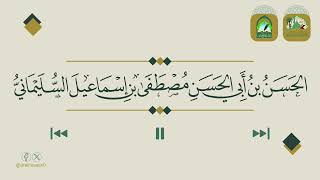 الحَسَنُ بْنُ أَبِي الحَسَنِ مُصْطَفَى بْنِ إِسْمَاعِيلَ السُّلَيْمَانِيُّ